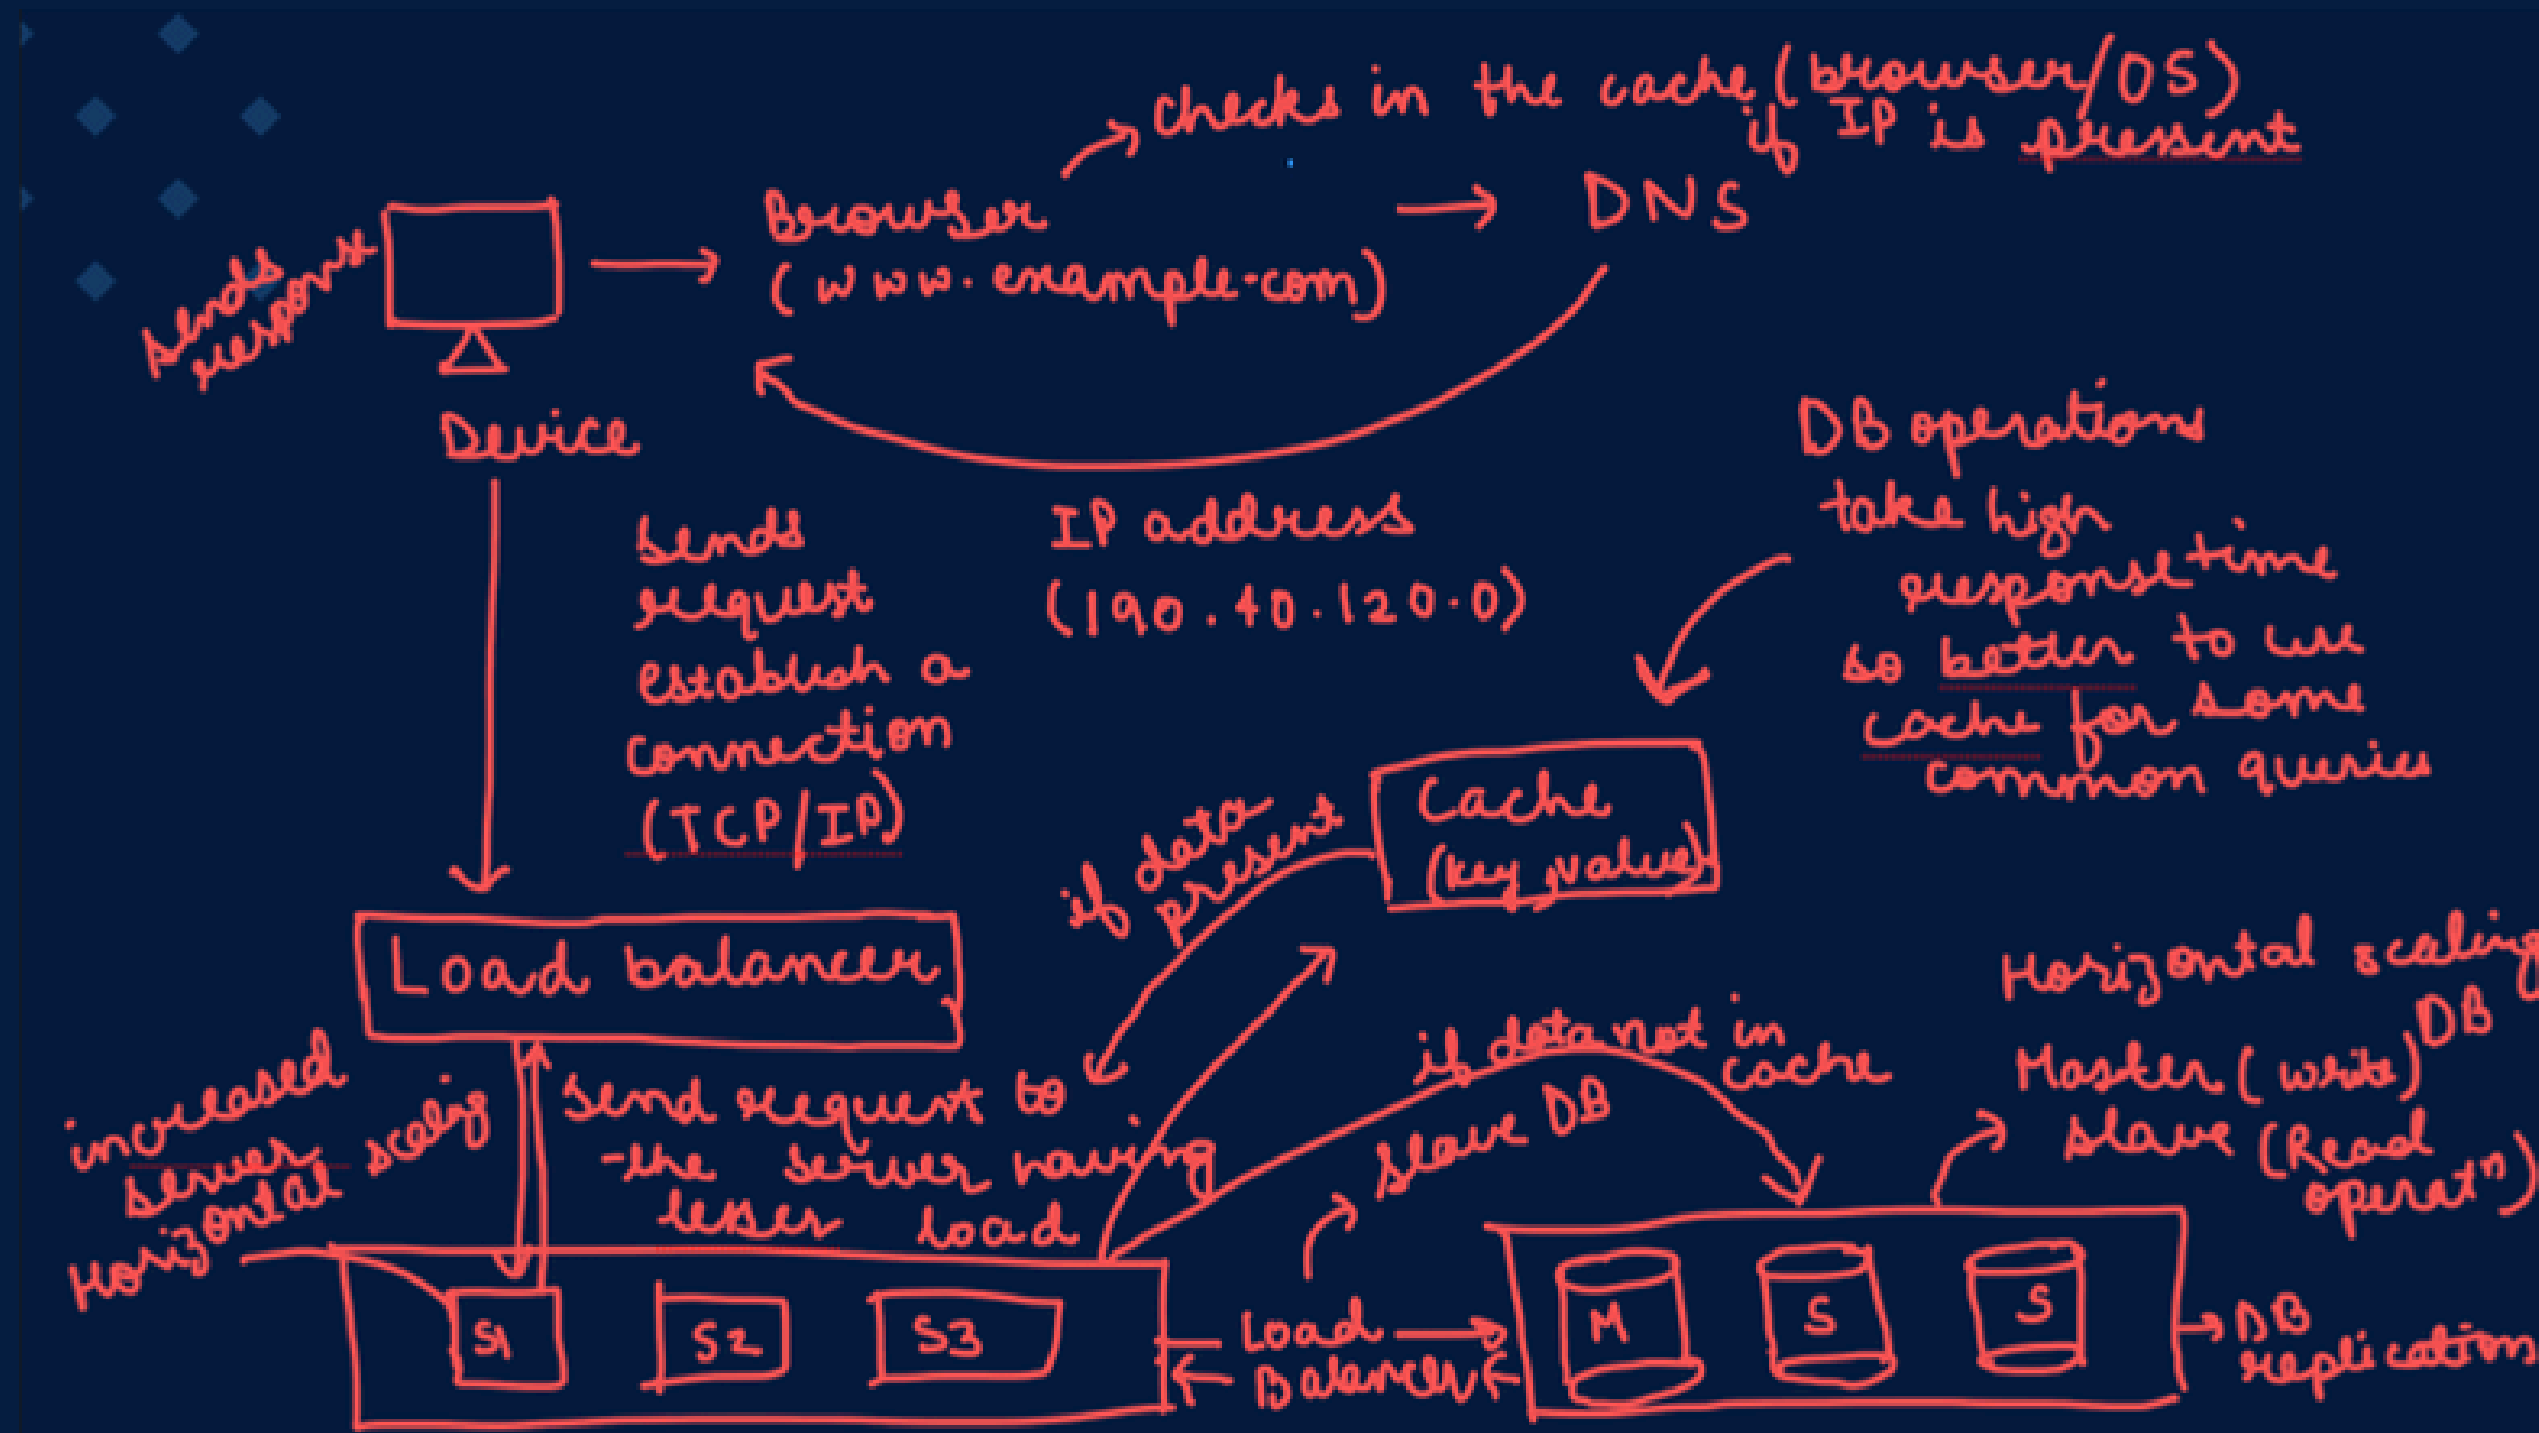 checks in the cache (browser/OS)
if IP is present
Browser
(www.example.com)
DNS
sends
response
Device
sends
request
establish a
connection
(TCP/IP)
IP address
(190.40.120.0)
DB operations
take high
response time
so better to use
cache for some
common queries
Cache
(key, value)
if data
present
Load balancer
increased
server
Horizontal scaling
send request to
the server having
lesser load
if data not in
cache
slave DB
Horizontal scaling
DB
Master (write)
slave (Read
operatn)
S1
S2
S3
Load
Balancer
M
S
S
DB
replication